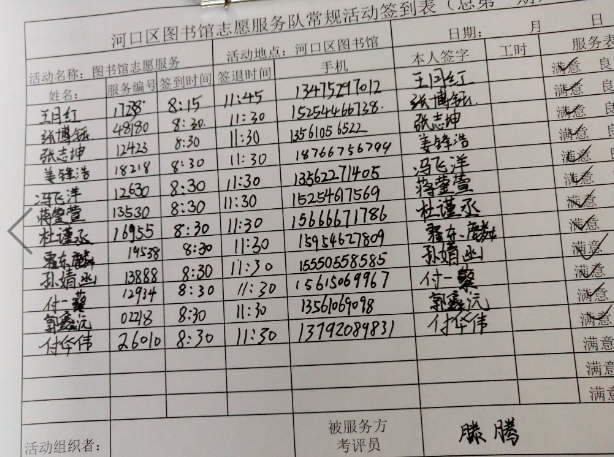 河口区图书馆志愿服务队常规活动签到表（总第 期）
活动名称：图书馆志愿服务 活动地点：河口区图书馆 日期： 月 日
姓名： 服务编号 签到时间 签退时间 手机 本人签字 工时 服务表
王月红 1738 8:15 11:45 13475297012 王月红 满意 良
张博钰 48180 8:30 11:30 15254466738 张博钰 满意 良
张志坤 12423 8:30 11:30 13561056522 张志坤 满意 良
姜锋浩 18218 8:30 11:30 18766756799 姜锋浩 满意 良
冯飞洋 12630 8:30 11:30 13562271405 冯飞洋 满意 良
蒋蓥萱 13530 8:30 11:30 15254617569 蒋蓥萱 满意
杜谨丞 16955 8:30 11:30 15666671786 杜谨丞 满意
翟东麟 14538 8:30 11:30 15954627809 翟东麟 满意
孙婧函 13888 8:30 11:30 15550558585 孙婧函 满意
付一蘩 12934 8:30 11:30 15615069967 付一蘩 满意
郭鑫沅 02218 8:30 11:30 13561069098 郭鑫沅 满意
付华伟 26010 8:30 11:30 13792089831 付华伟 满意
满意
满意
满意
活动组织者： 被服务方
考评员 滕腾